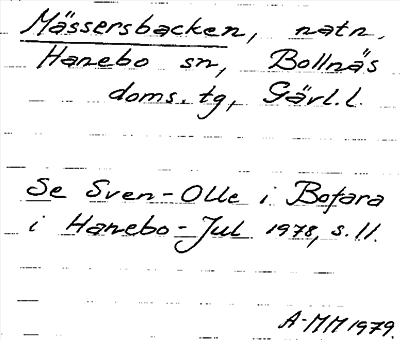 Mässersbacken, natn.
Hanebo sn, Bollnäs
doms. tg, Gävl. l.
Se Sven-Olle i Bofara
i Hanebo-Jul 1978, s. 11.
A-MM 1979.